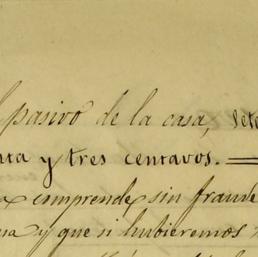 pasivo de la casa, sete
nta y tres centavos. =
comprende sin fraude
y que si hubieremos